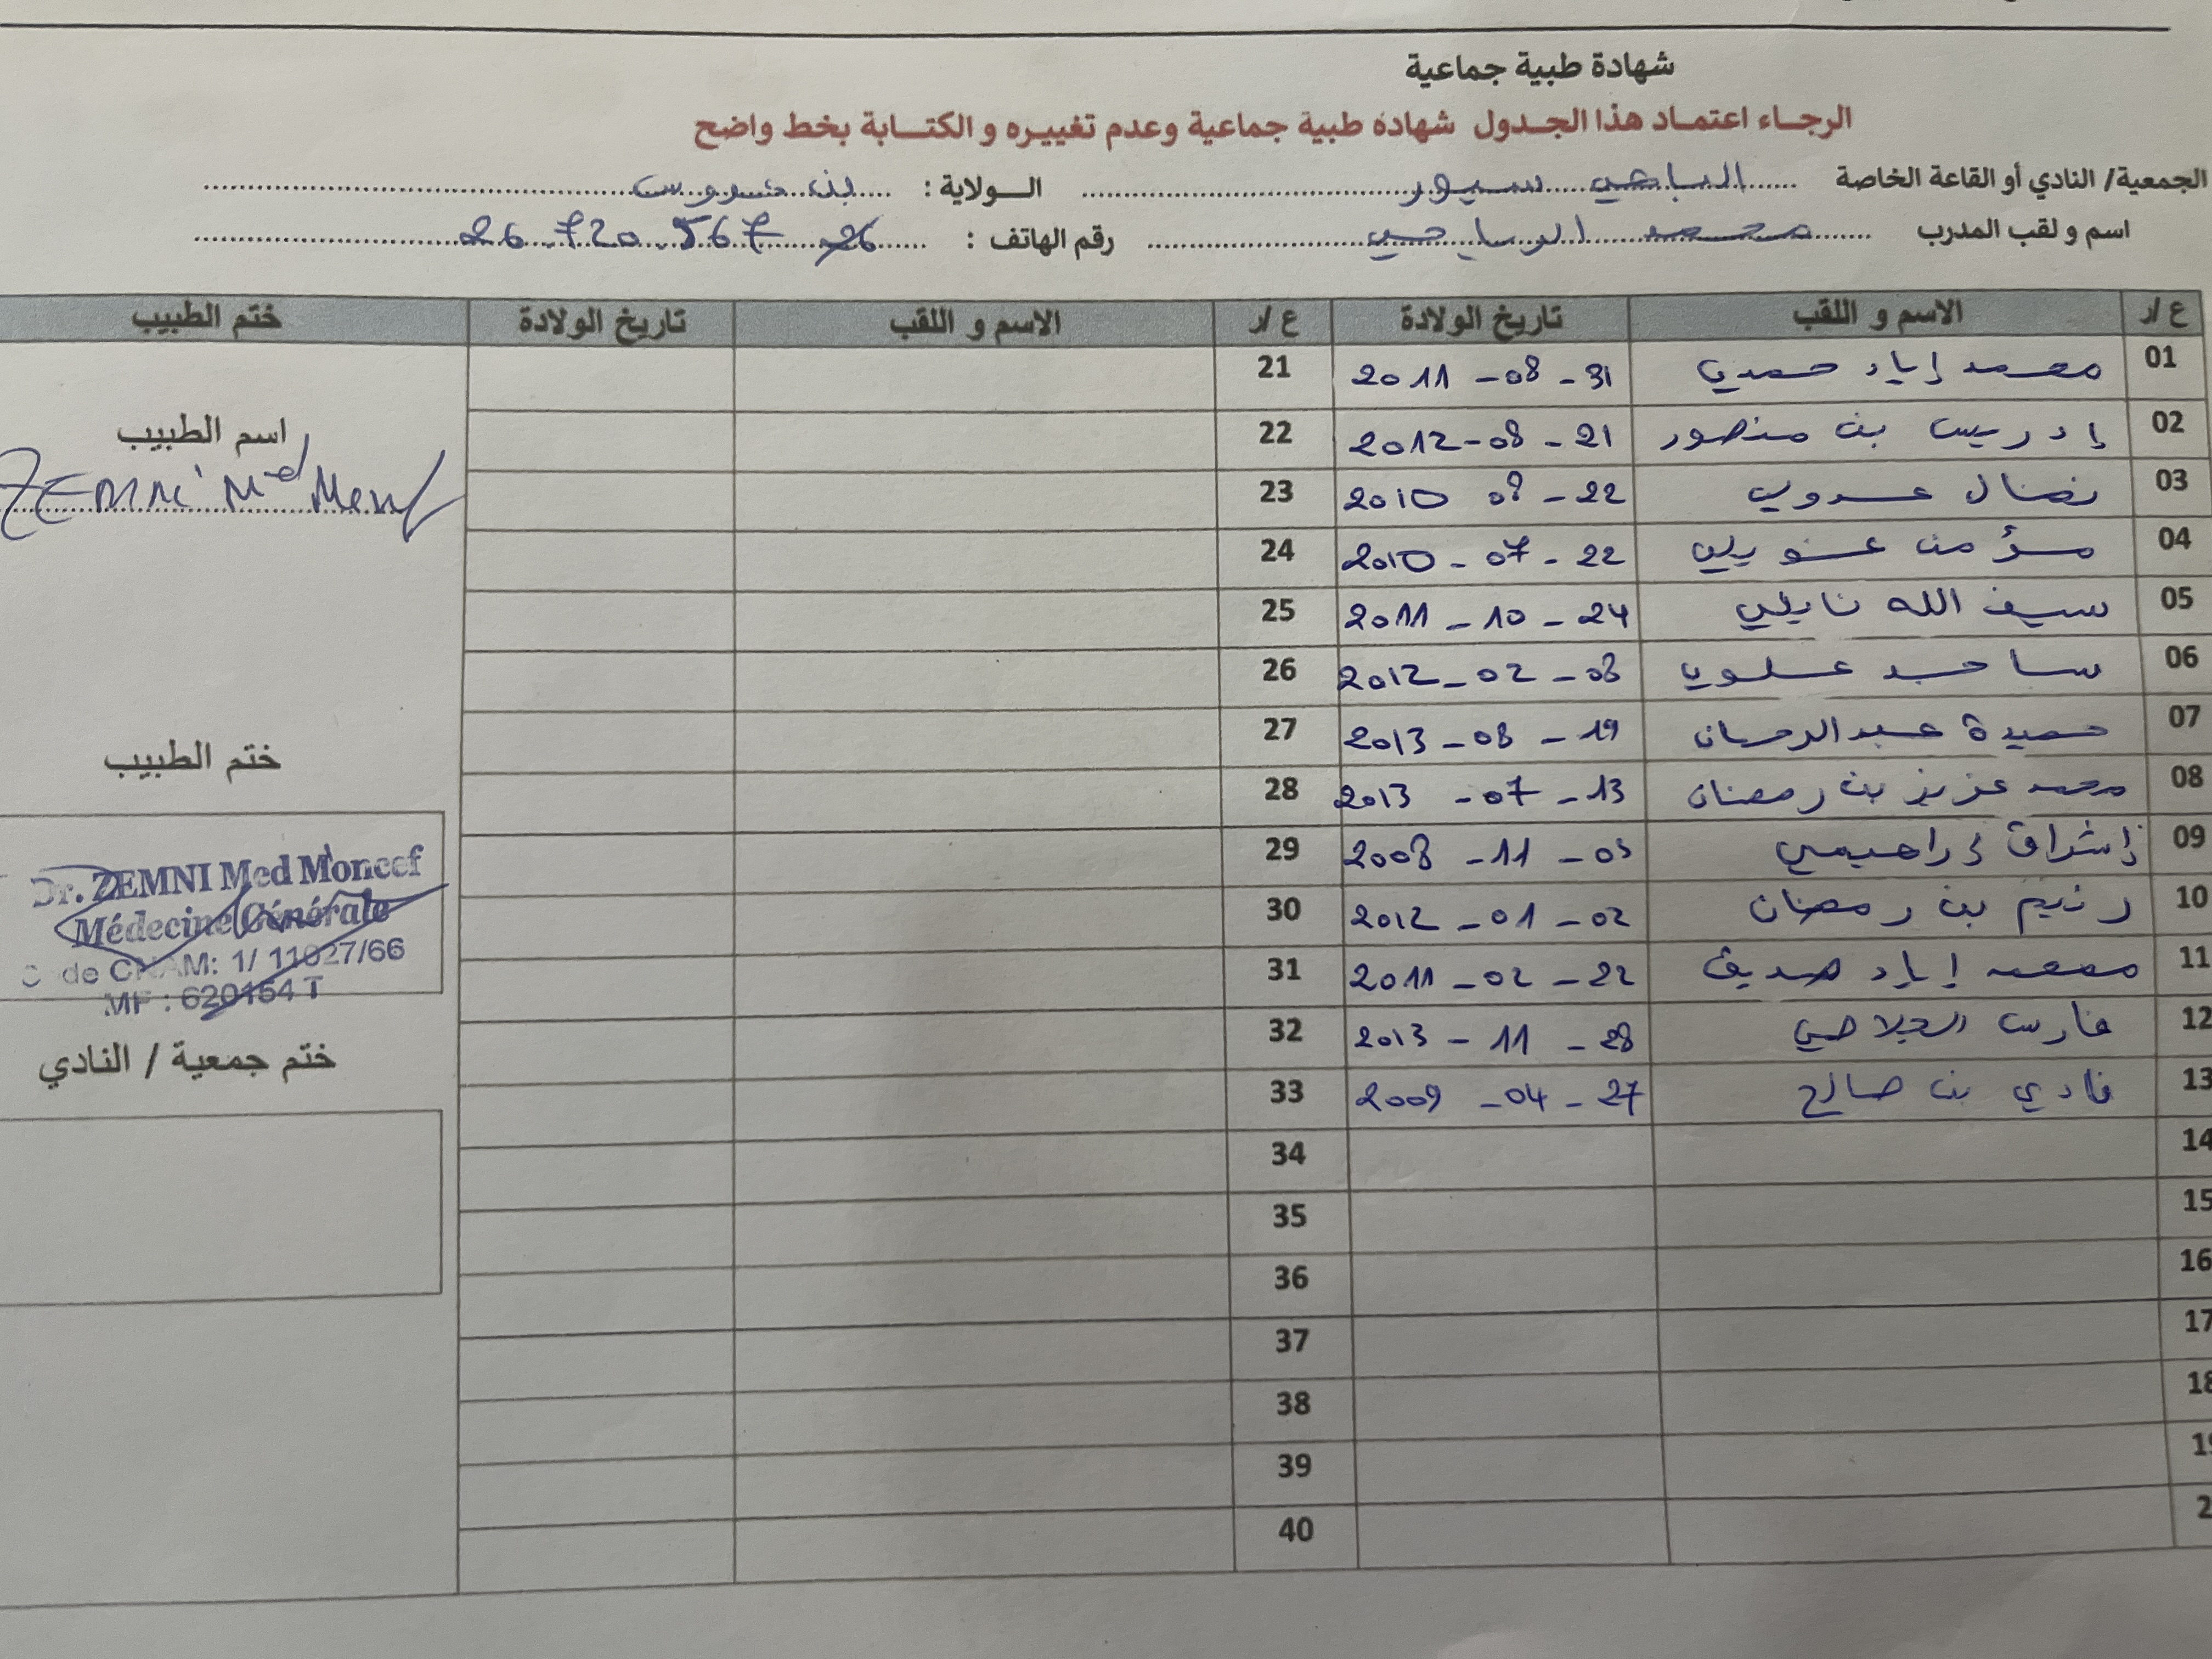 شهادة طبية جماعية
الرجاء اعتماد هذا الجدول شهادة طبية جماعية وعدم تغييره و الكتابة بخط واضح
الجمعية/ النادي أو القاعة الخاصة الباهي سبور الولاية : بن عروس
اسم و لقب المدرب محمد الرياحي رقم الهاتف : 26 720 567
ع/ر الاسم و اللقب تاريخ الولادة ع/ر الاسم و اللقب تاريخ الولادة ختم الطبيب
01 محمد إياد حمدي 31 - 08 - 2011 21
02 إدريس بن منصور 21 - 08 - 2012 22
03 نضال 22 - 2010 23
04 مؤمن 22 - 07 - 2010 24
05 سيف الله نايلي 24 - 10 - 2011 25
06 علوي 08 - 02 - 2012 26
07 حميدة عبد الرحمان 19 - 08 - 2013 27
08 محمد عزيز بن رمضان 13 - 07 - 2013 28
09 إشراق إبراهيمي 11 - 2008 29
10 رنيم بن رمضان 02 - 01 - 2012 30
11 محمد إياد صديق 22 - 02 - 2011 31
12 فارس الجلاصي 28 - 11 - 2013 32
13 فادي بن صالح 27 - 04 - 2009 33
14 34
15 35
16 36
17 37
18 38
39
40
اسم الطبيب
ZEMNI Med
ختم الطبيب
Dr. ZEMNI Med Moncef
Médecine Générale
Code CNAM: 1/ 11027/66
MF : 620154 T
ختم جمعية / النادي